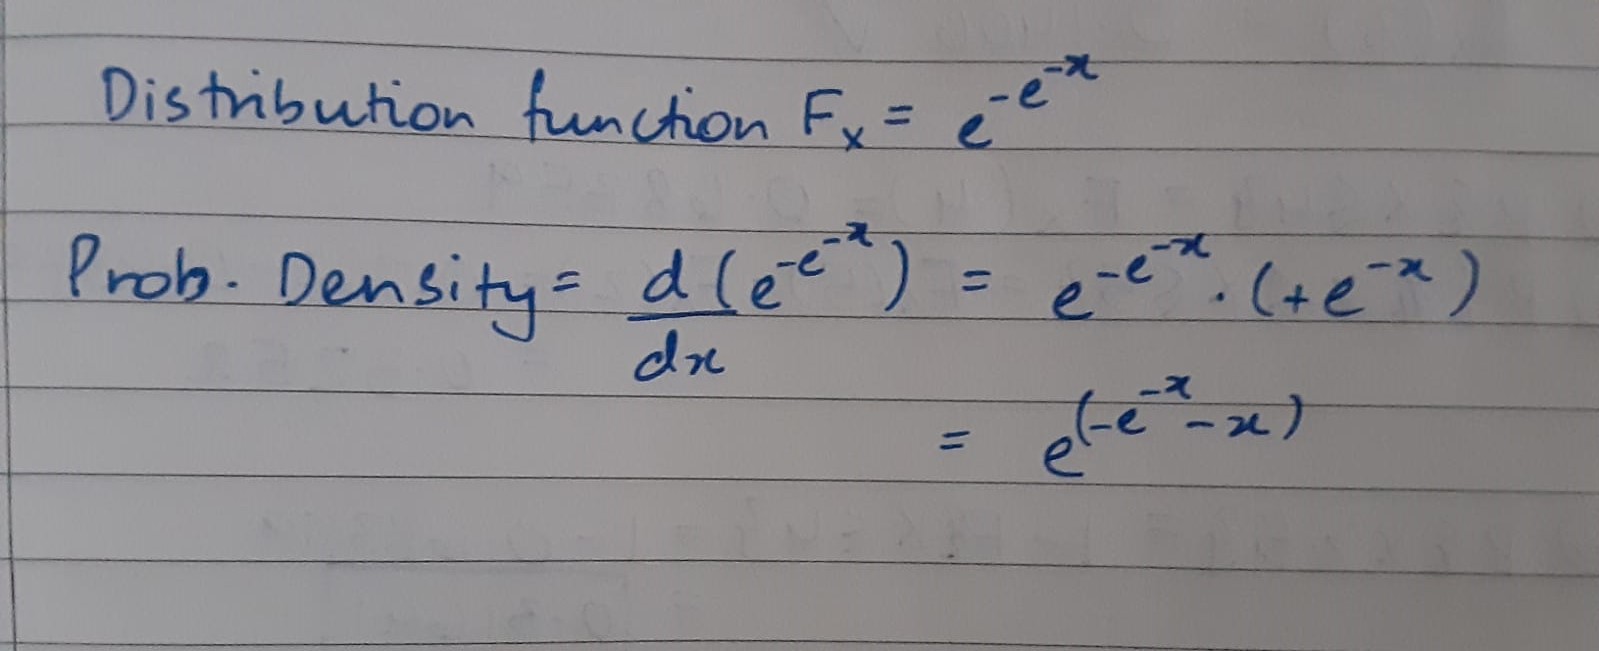 Distribution function Fₓ = e^{-e^{-x}}
Prob. Density = d/dx (e^{-e^{-x}}) = e^{-e^{-x}} . (+e^{-x})
= e^{(-e^{-x} - x)}